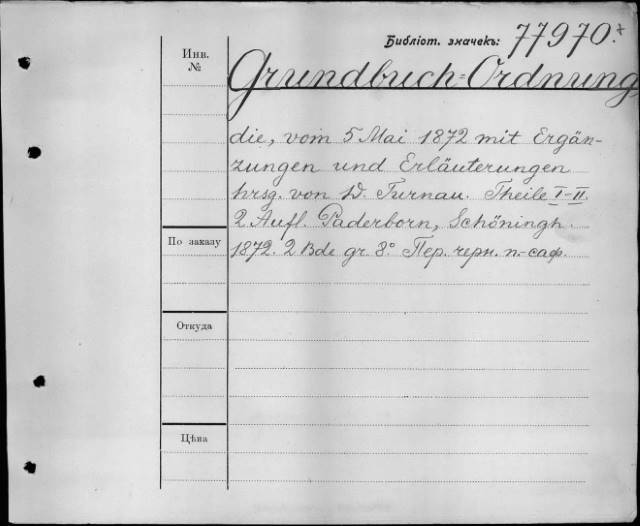 Библіот. значекъ: 77970.
Инв. №
Grundbuch=Ordnung,
die, vom 5 Mai 1872 mit Ergän-
zungen und Erläuterungen
hrsg. von W. Turnau. Theile I-II.
2. Aufl. Paderborn, Schöningh.
По заказу
1872. 2 Bde gr. 8° Пер. черн. п.-саф.
Откуда
Цѣна